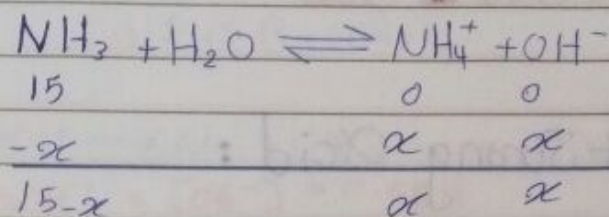 NH₃ + H₂O ⇌ NH₄⁺ + OH⁻
15 0 0
-x x x
15-x x x